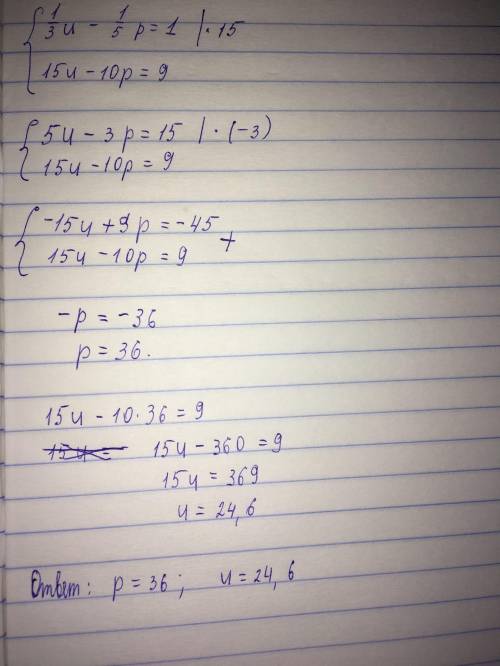 1/3 u - 1/5 p = 1 | · 15
15u - 10p = 9
5u - 3p = 15 | · (-3)
15u - 10p = 9
-15u + 9p = -45
+
15u - 10p = 9
-p = -36
p = 36.
15u - 10 · 36 = 9
15u = 15u - 360 = 9
15u = 369
u = 24,6
Ответ: p = 36 ; u = 24,6